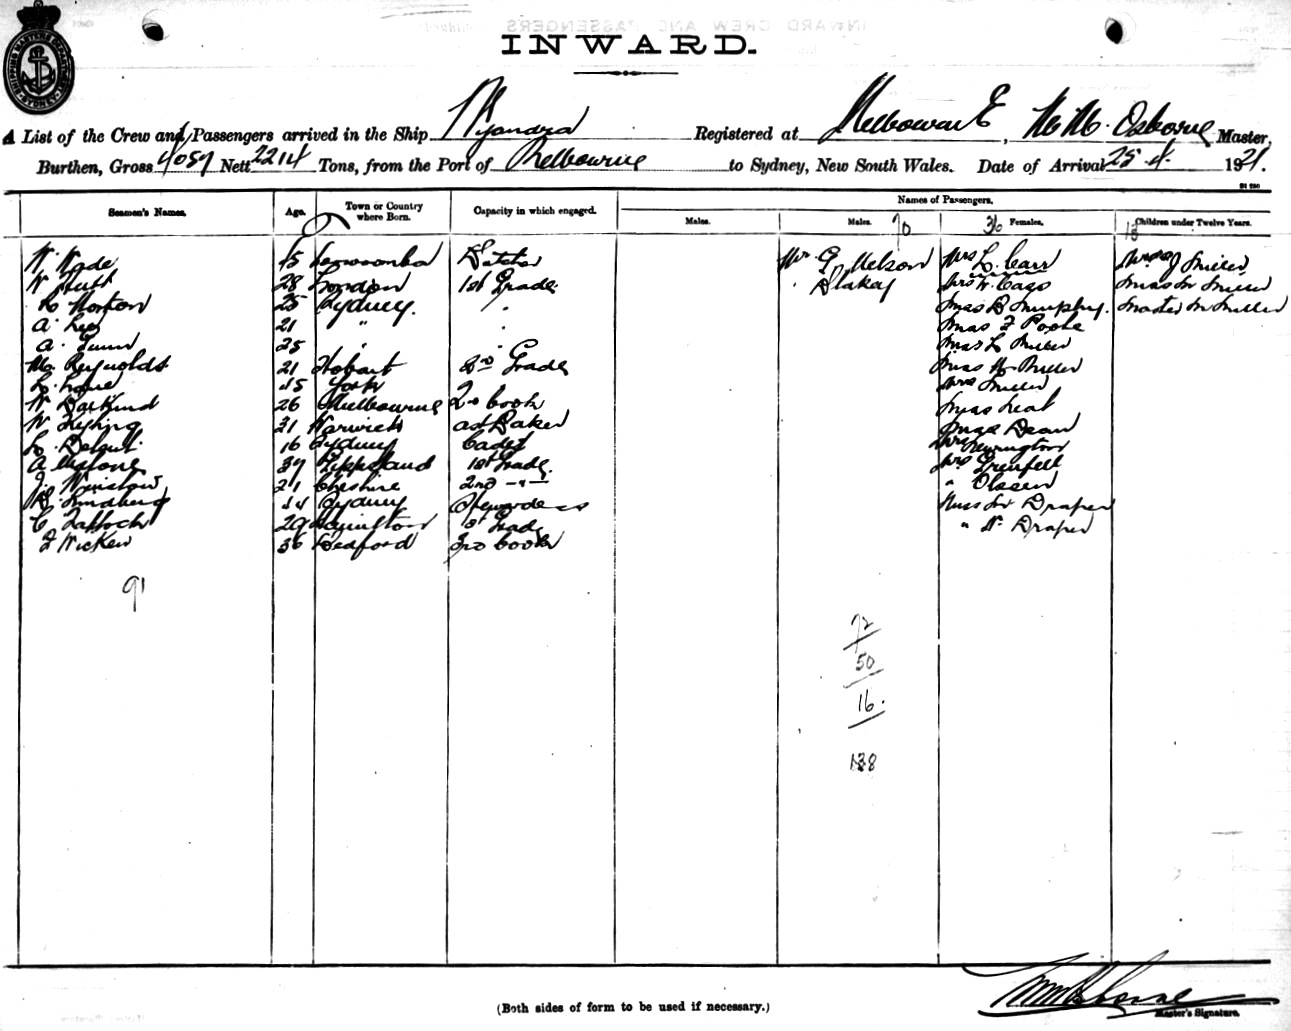 SHIPPING MASTERS DEPARTMENT SYDNEY
INWARD.
A List of the Crew and Passengers arrived in the Ship Wyandra Registered at Melbourne, M. M. Osborne Master,
Burthen, Gross 4057 Nett 2214 Tons, from the Port of Melbourne to Sydney, New South Wales. Date of Arrival 25-4- 1921.
Names of Passengers.
Seamen's Names. Age. Town or Country where Born. Capacity in which engaged. Males. Males. Females. Children under Twelve Years.
70 36
W. Wade 15 Toowoomba Mr G. Nelson Mrs L. Carr J Miller
W 28 London 1st Grade " Blakey Mrs W. Cass Miss Miller
L. Norton 25 Sydney. " Miss B Murphy. Master M Miller
A. Lee 21 " " Miss F Poole
A. Gunn 25 " " Miss L Miller
M. Reynolds 21 Hobart 2nd Grade Miss Miller
45 York " Mrs Miller
W 26 Melbourne 2nd Cook Miss Neal
W 31 Warwick Baker Miss Dean
16 Sydney Cadet Mrs Newington
A 39 Gippsland 1st Grade Mrs Grenfell
J. Winslow 21 Cheshire 2nd " " Olssen
Lundberg Sydney Stewardess Miss Draper
C 29 Hamilton 1st Grade " N. Draper
F Wicken 36 Bedford 3rd Cook
91
72
50
16.
138
(Both sides of form to be used if necessary.)
M M Osborne
Master's Signature.